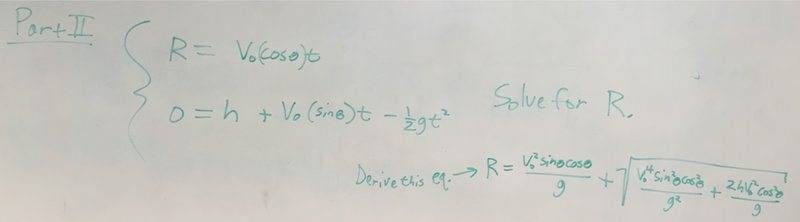 Part II
R = V₀(cosθ)t
0 = h + V₀(sinθ)t - ½gt²
Solve for R.
Derive this eq. → R = V₀² sinθcosθ / g + √(V₀⁴ sin²θcos²θ / g² + 2hV₀² cos²θ / g)